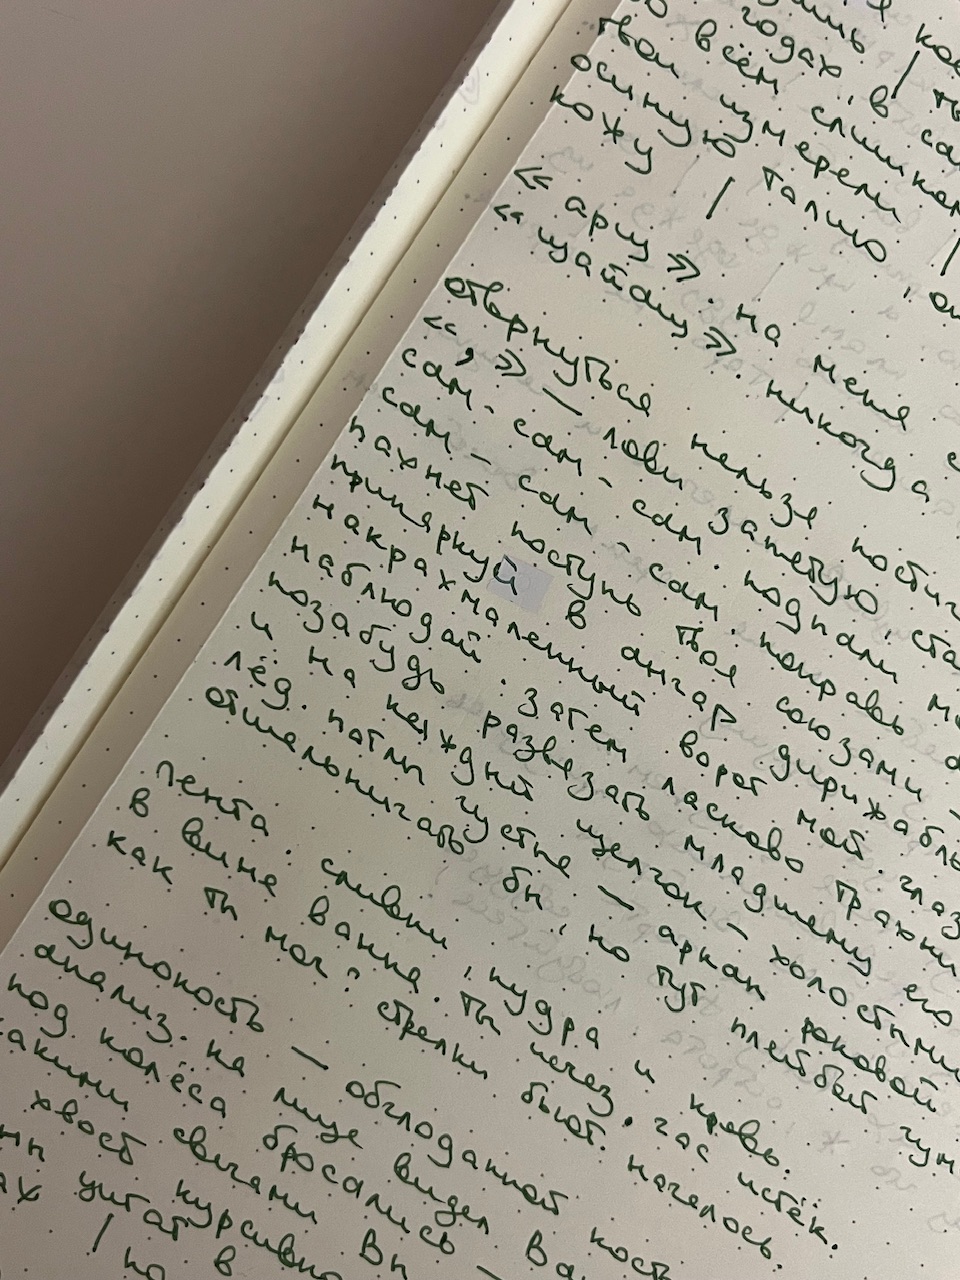 годах, в са
во всём слишком
твои измерели
осиную талию
кожу
« арщ ». на меня
« щайащ ». никогда
отвернуться нельзя пости
« , » — лови запетую, ста
сам - сам - сам подпали м
сам - сам - сам. поправь
пахнет поступь твоя союзами —
припаркуй в ангар дирижабль
накрахмаленный ворот мой. глаз
наблюдай. затем ласково
позабудь развязать младшему его
и на каждый щелчок - холостыми
лёд. патлы густые — аркан роковой
отшельничать бы, но тут плейбой чум
лента. сливки, пудра и кровь.
в вине ванна. ты исчез. час истёк.
как ты мог? стрелки бьют. началось.
одинокость — обглоданной кость
анализ. на лице видел ва
под колёса бросались
акими свечами вы —
хвост курсивно
учтат
| но в